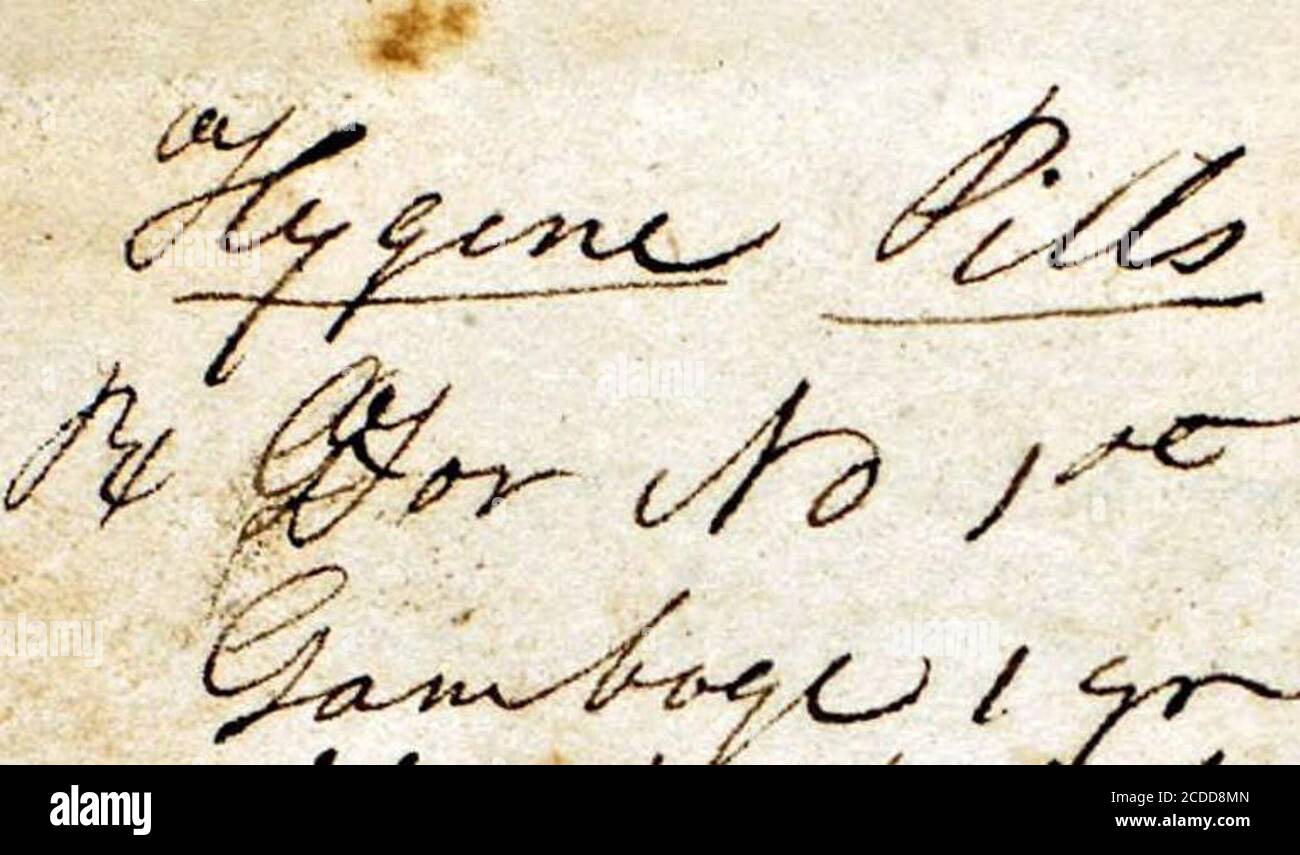 Hygene Pills
Rx For No 1st
Gamboge 1 gr
alamy
Image ID: 2CDD8MN
www.alamy.com